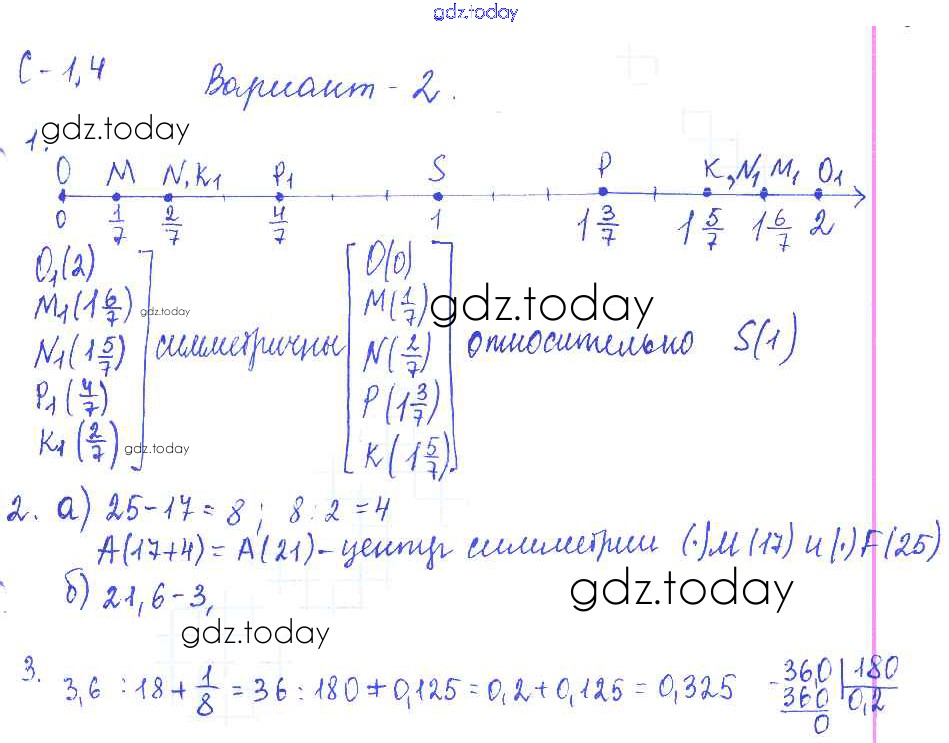 gdz.today
С-1,4
Вариант-2.
gdz.today
1.
O M N,K1 P1 S P K,N1 M1 O1
0 1/7 2/7 4/7 1 1 3/7 1 5/7 1 6/7 2
O1(2) O(0)
M1(1 6/7) gdz.today M(1/7) gdz.today
N1(1 5/7) симметричны N(2/7) относительно S(1)
P1(4/7) P(1 3/7)
K1(2/7) gdz.today K(1 5/7)
2. а) 25-17=8; 8:2=4
A(17+4)=A(21)-центр симметрии (·)M(17) и (·)F(25)
б) 21,6-3,
gdz.today
gdz.today
3. 3,6 : 18 + 1/8 = 36 : 180 + 0,125 = 0,2 + 0,125 = 0,325
-36,0 | 180
360 | 0,2
0